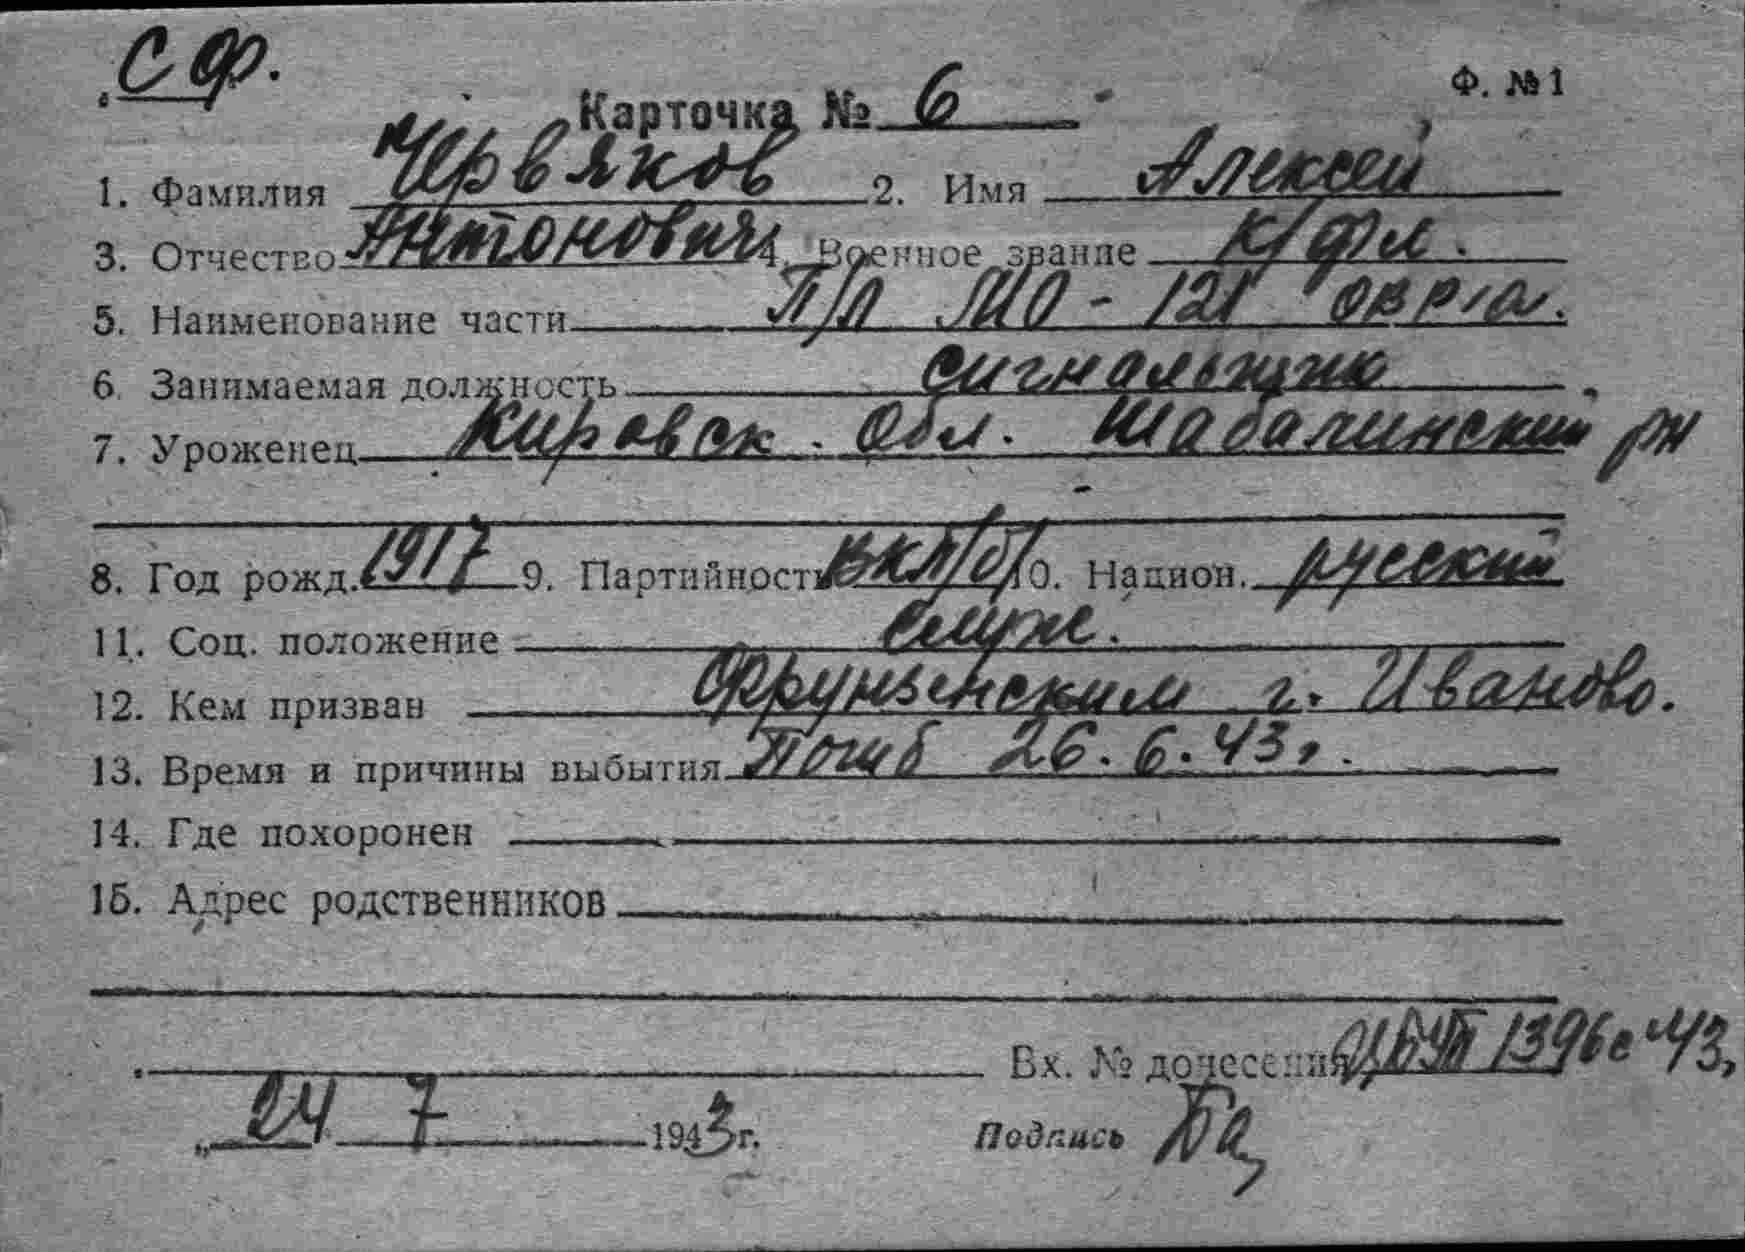 СФ.
Ф. № 1
Карточка № 6
1. Фамилия Червяков 2. Имя Алексей
3. Отчество Антонович 4. Военное звание к/фл.
5. Наименование части П/Л МО - 121 ОВРа.
6. Занимаемая должность сигнальщик
7. Уроженец Кировск. обл. Шабалинский рн
8. Год рожд. 1917 9. Партийность ВКП/б/ 10. Национ. русский
11. Соц. положение служ.
12. Кем призван Фрунзенским г. Иваново.
13. Время и причины выбытия Погиб 26.6.43г.
14. Где похоронен
15. Адрес родственников
Вх. № донесения 1396с 43г
„ 24 7 1943 г. Подпись